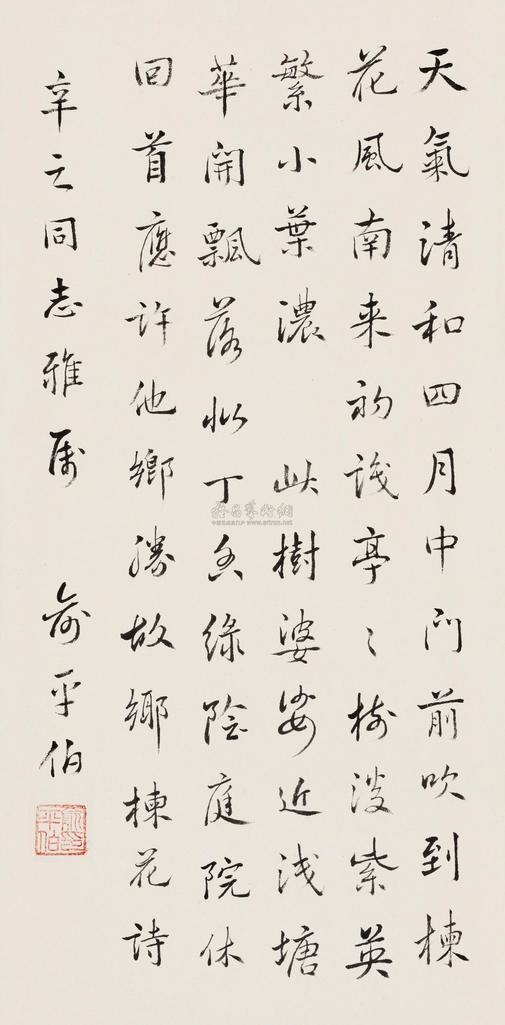 天氣清和四月中門前吹到楝
花風南来初識亭〻樹淡紫英
繁小葉濃 此樹婆娑近浅塘
華開飄落似丁香綠陰庭院休
回首應許他鄉勝故鄉楝花詩
辛之同志雅屬 俞平伯
俞印平伯
www.artron.net